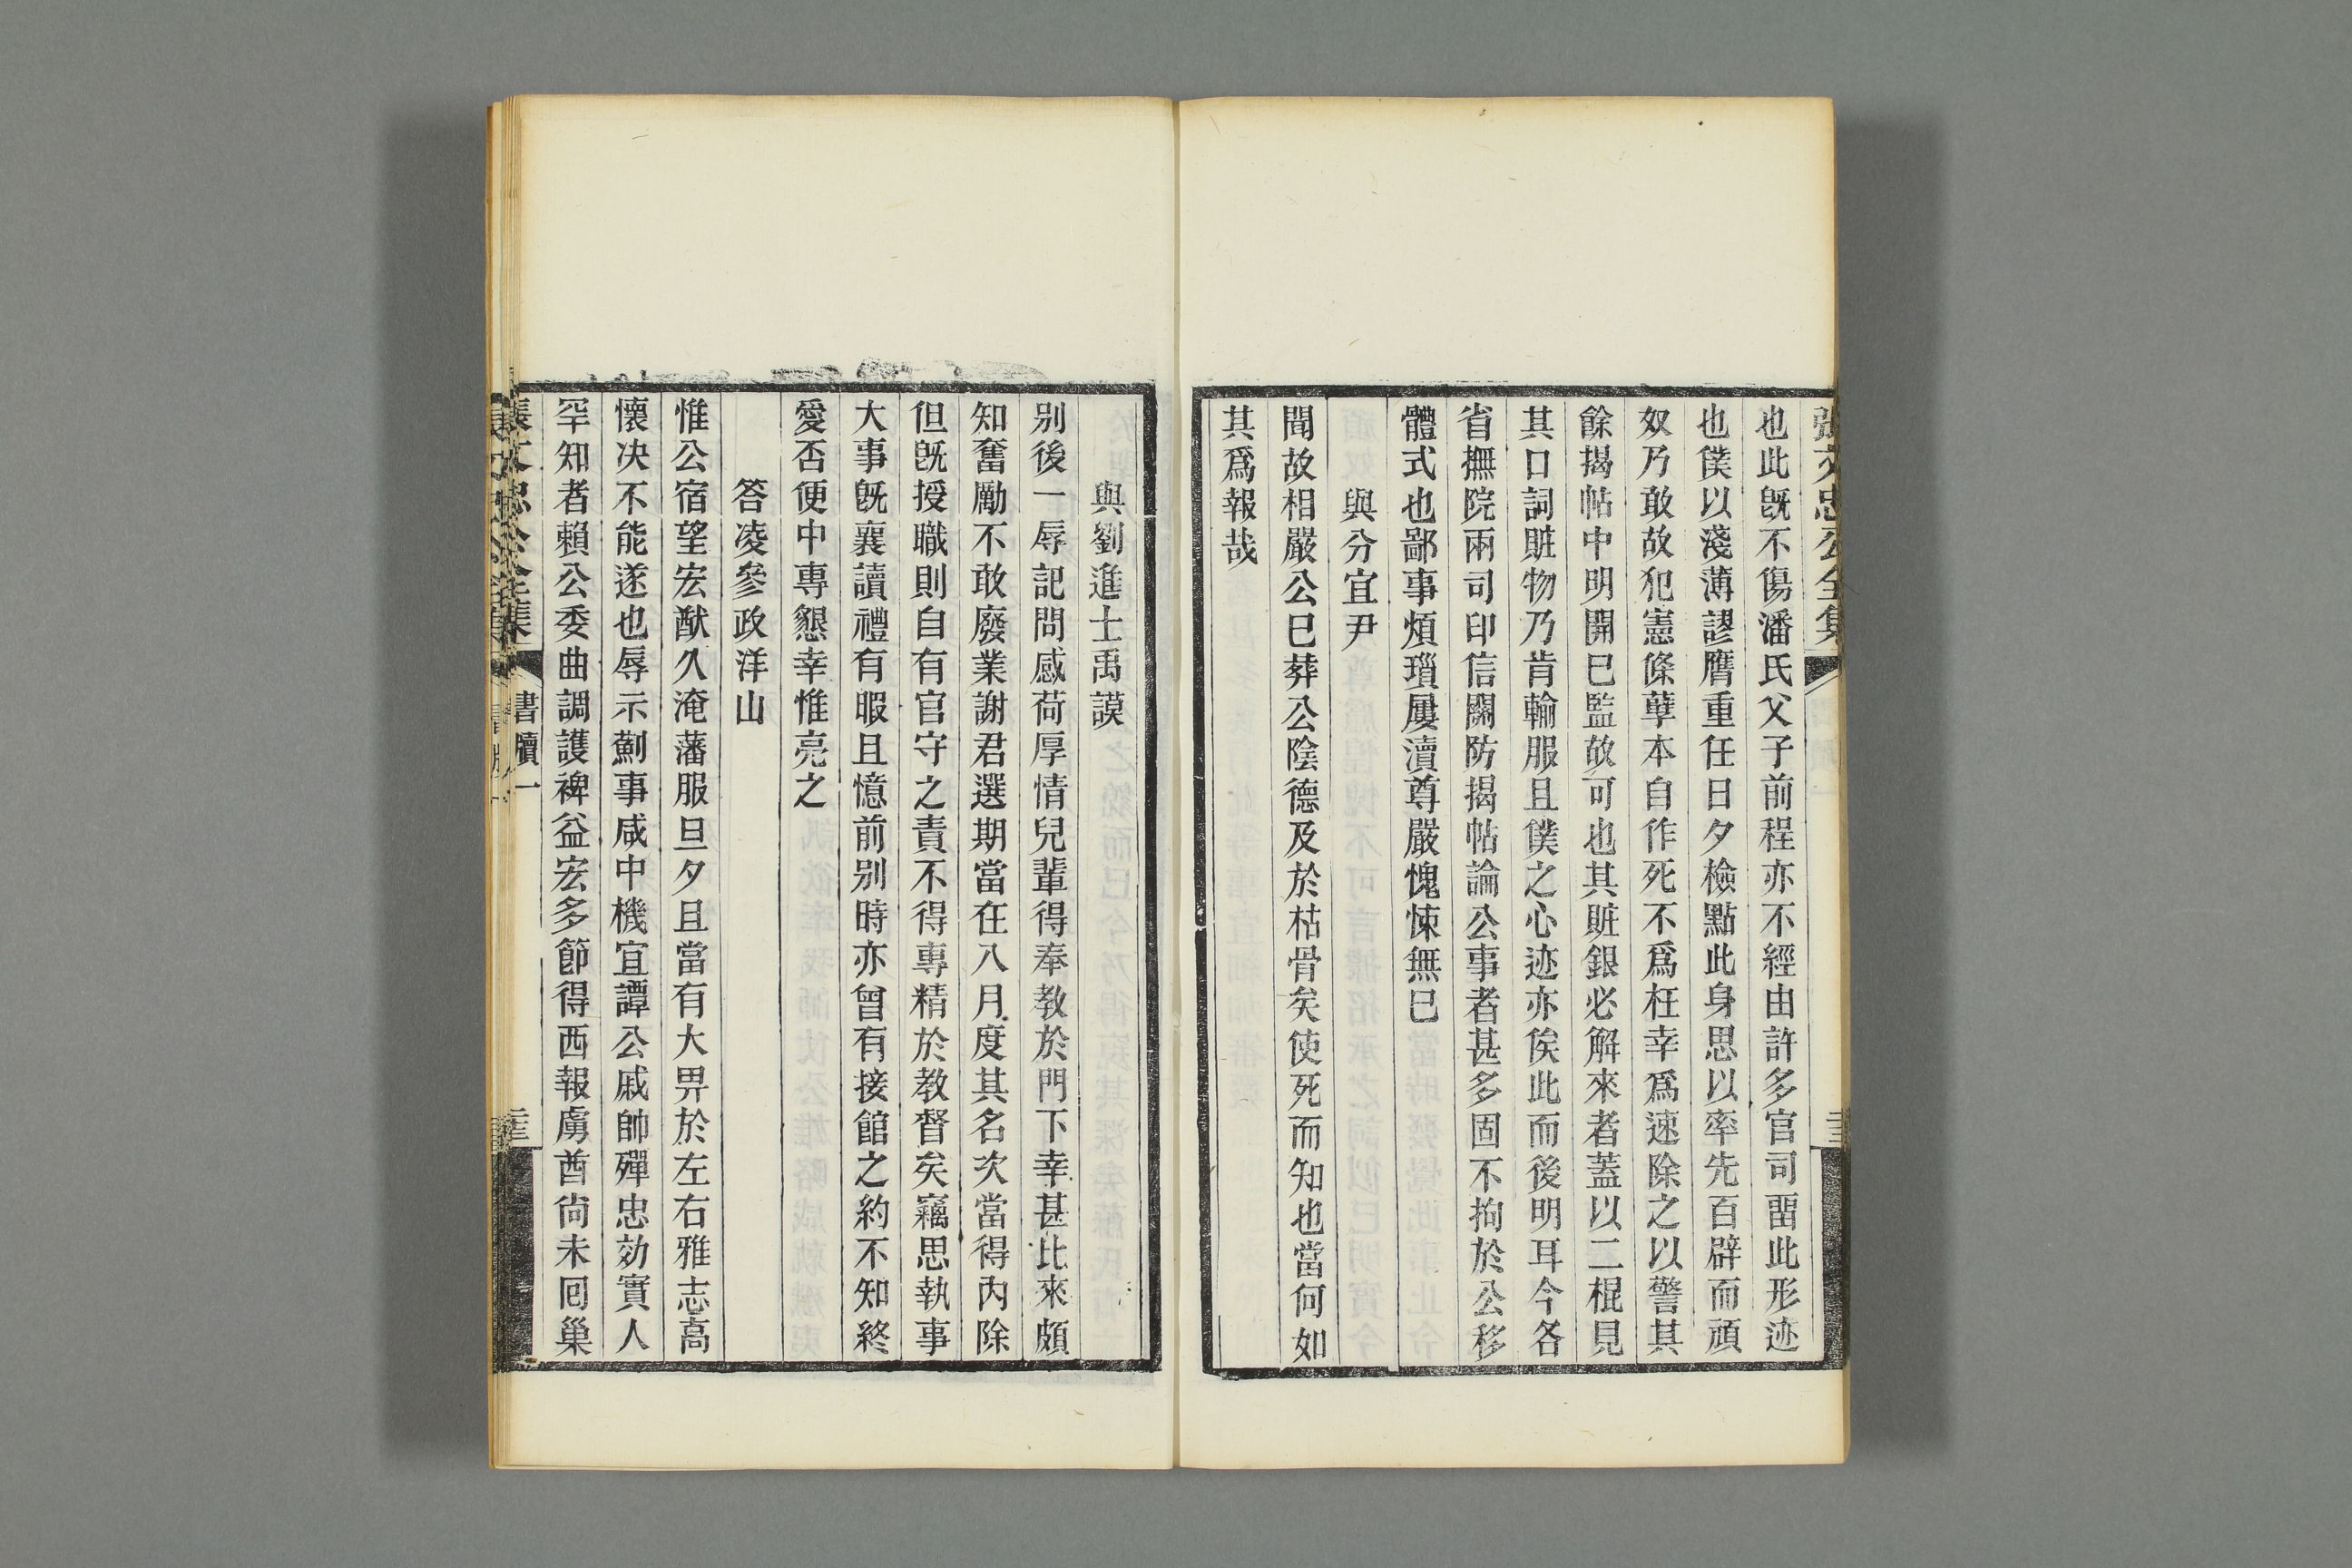 張文忠公全集
也此旣不傷潘氏父子前程亦不經由許多官司畱此形迹
也僕以淺薄謬膺重任日夕檢點此身思以率先百辟而頑
奴乃敢故犯憲條孽本自作死不爲枉幸爲速除之以警其
餘揭帖中明開已監故可也其賍銀必解來者蓋以二棍見
其口詞賍物乃肯輸服且僕之心迹亦俟此而後明耳今各
省撫院兩司印信關防揭帖論公事者甚多固不拘於公移
體式也鄙事煩瑣屢瀆尊嚴愧悚無已
與分宜尹
聞故相嚴公已葬公陰德及於枯骨矣使死而知也當何如
其爲報哉
與劉進士禹謨
別後一辱記問感荷厚情兒輩得奉敎於門下幸甚比來頗
知奮勵不敢廢業謝君選期當在八月度其名次當得內除
但旣授職則自有官守之責不得專精於敎督矣竊思執事
大事旣襄讀禮有暇且憶前別時亦曾有接館之約不知終
愛否便中專懇幸惟亮之
答凌參政洋山
惟公宿望宏猷久淹藩服旦夕且當有大畀於左右雅志高
懷决不能遂也辱示薊事咸中機宜譚公戚帥殫忠効實人
罕知者賴公委曲調護裨益宏多節得西報虜酋尙未囘巢
張文忠公全集
書牘一